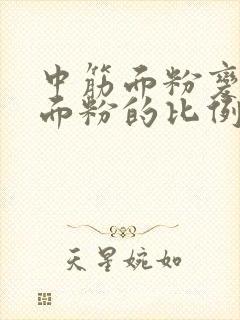 中筋面粉变
面粉的比例
天星婉如